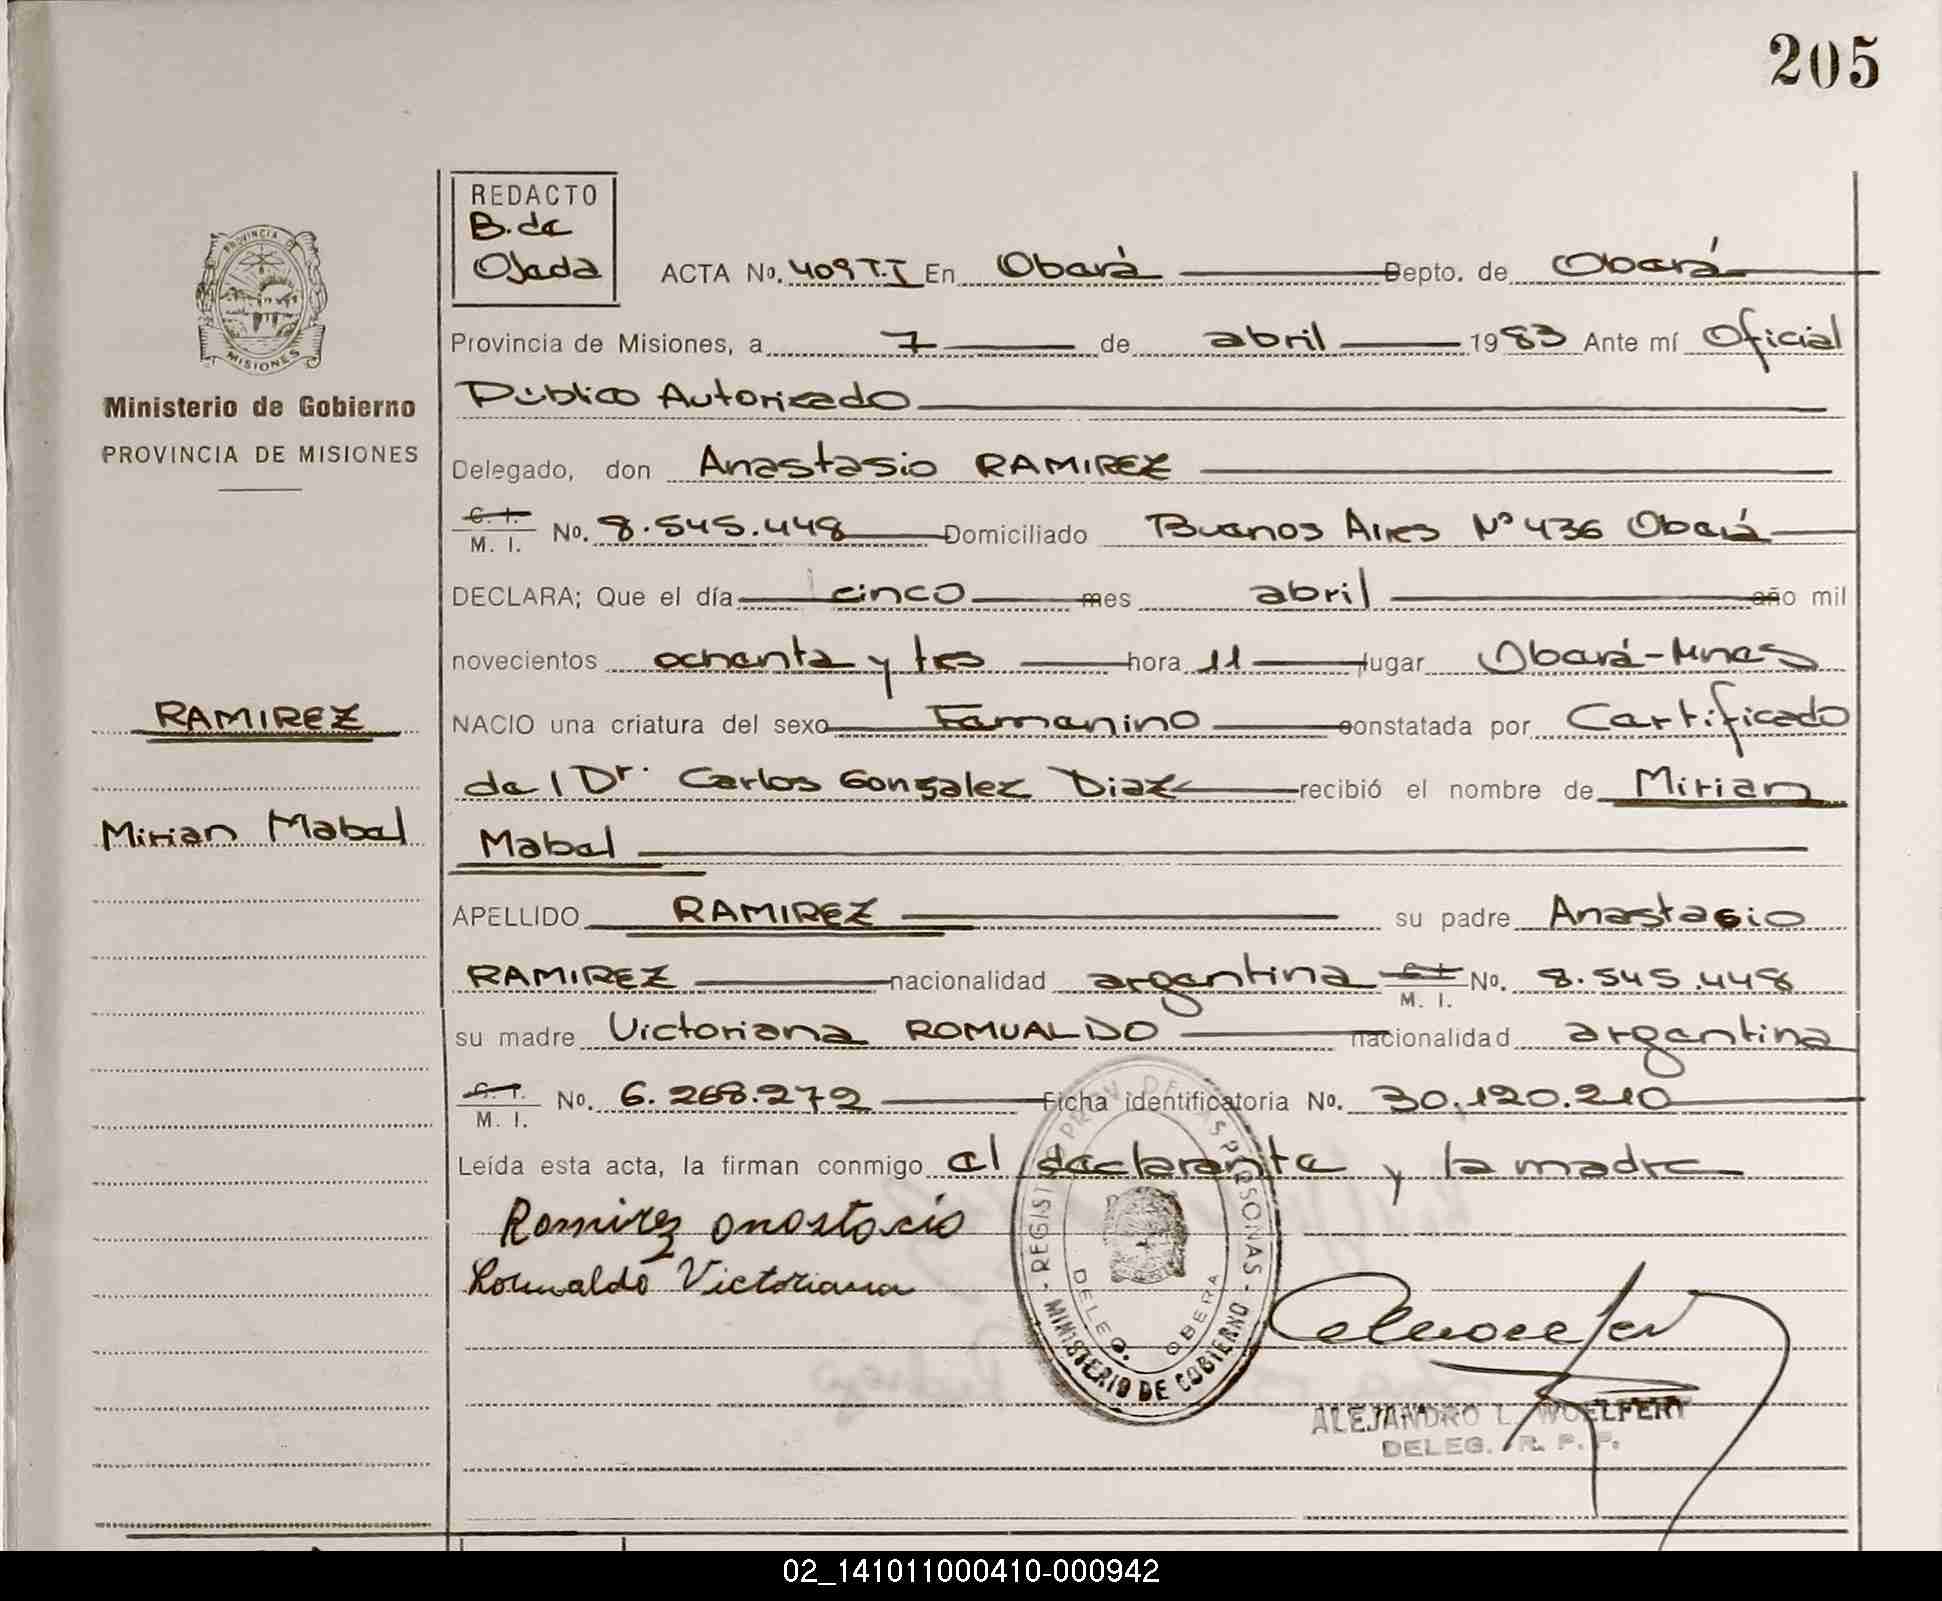 205
REDACTO
B. de
Ojeda
ACTA No. 409 T.I En Oberá Depto. de Oberá
PROVINCIA DE
MISIONES
Provincia de Misiones, a 7 de abril 1983 Ante mí Oficial
Público Autorizado
Ministerio de Gobierno
PROVINCIA DE MISIONES
Delegado, don Anastasio RAMIREZ
C. I.
M. I. No. 8.545.448 Domiciliado Buenos Aires Nº 436 Oberá
DECLARA; Que el día cinco mes abril año mil
novecientos ochenta y tres hora 11 lugar Oberá-Mnes
RAMIREZ
NACIO una criatura del sexo Femenino constatada por Certificado
del Dr. Carlos Gonzalez Diaz recibió el nombre de Mirian
Mirian Mabel
Mabel
APELLIDO RAMIREZ su padre Anastasio
RAMIREZ nacionalidad argentina C. I. No. 8.545.448
M. I.
su madre Victoriana ROMUALDO nacionalidad argentina
C. I.
M. I. No. 6.268.272 Ficha identificatoria No. 30.120.210
Leída esta acta, la firman conmigo el declarante y la madre
Ramirez anastacio
Romualdo Victoriana
REGIST. PROV. DE LAS PERSONAS
DELEG. OBERA
MINISTERIO DE GOBIERNO
ALEJANDRO L. WOELFERT
DELEG. R. P. P.
02_141011000410-000942